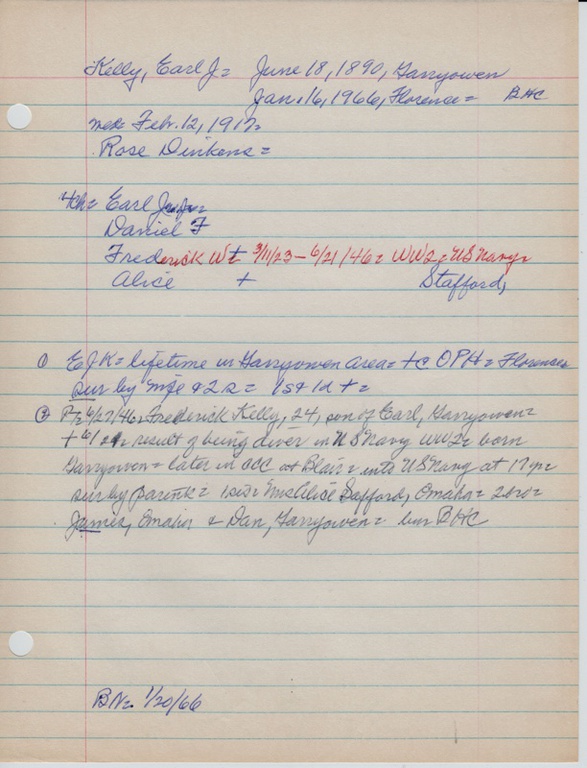 Kelly, Earl J= June 18, 1890, Garryowen
Jan. 16, 1966, Florence= BHC
med= Feb. 12, 1917=
Rose Dinkens=
4ch= Earl
Daniel F
Frederick W= + 3/11/23 - 6/21/46= WW2= US Navy=
Alice + Stafford,
① EJK= lifetime in Garryowen area= + @ OPH= Florence=
sur by wife & 2 s= 1s & 1d +=
② 6/27/46= Frederick Kelly, 24, son of Earl, Garryowen=
+ 6/21= result of being diver in US Navy WW2= born
Garryowen= later in CCC at Blair= into US Navy at 17 yr=
sur by parents= 1 sis= Mrs Alice Safford, Omaha= 2 bro=
James, Omaha & Dan, Garryowen= bur BHC
BN= 1/20/66